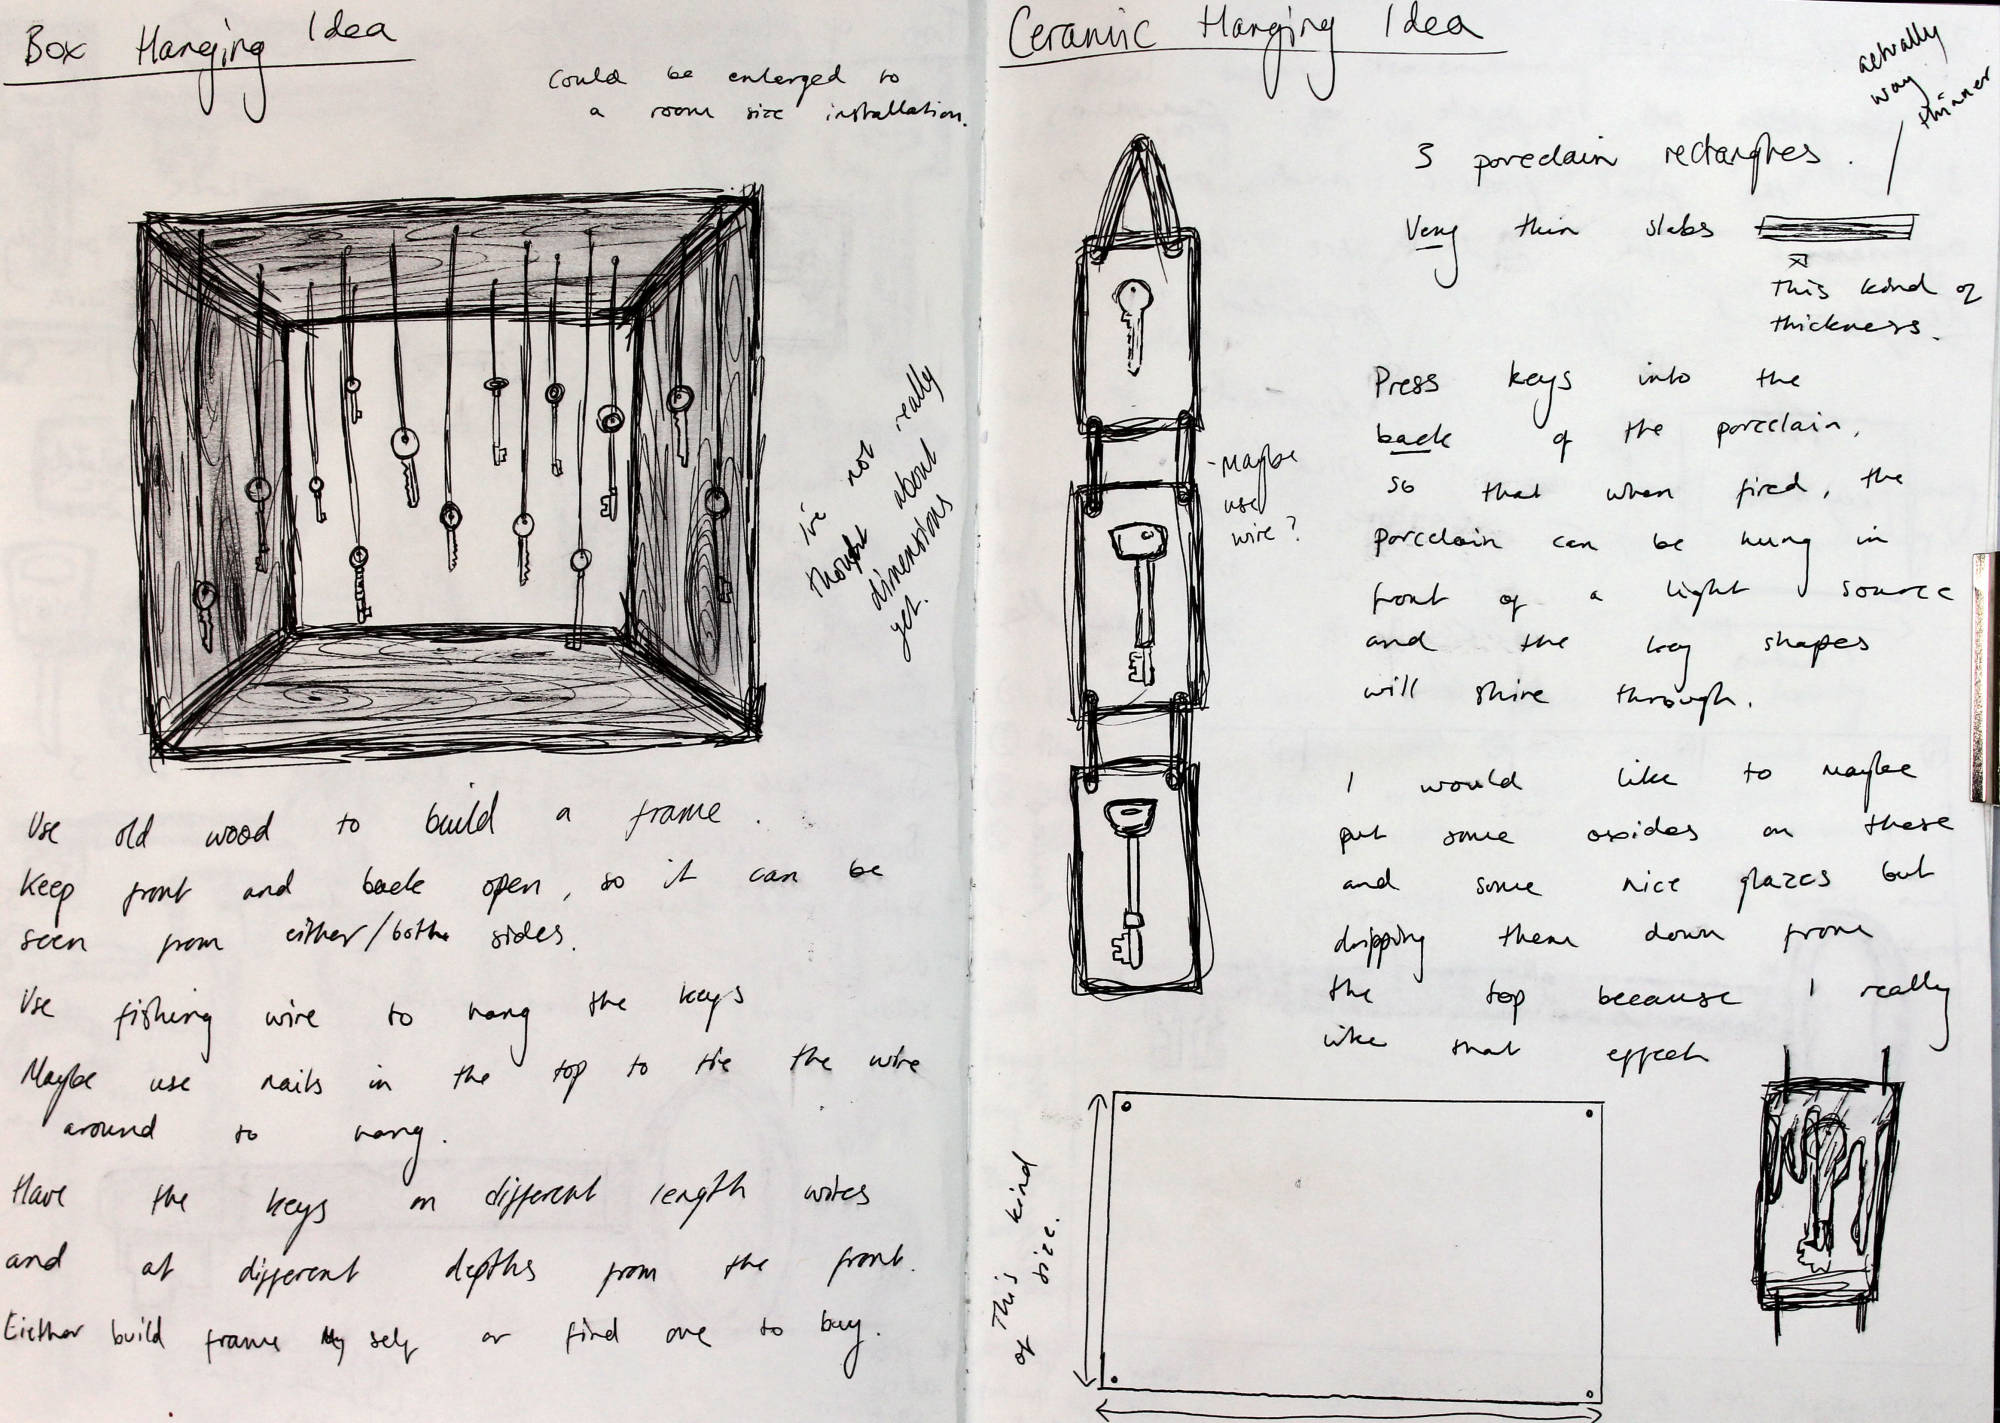 Box Hanging Idea
Could be enlarged to
a room size installation.
i've not really
thought about
dimensions
yet.
Use old wood to build a frame.
Keep front and back open, so it can be
seen from either/both sides.
Use fishing wire to hang the keys
Maybe use nails in the top to tie the wire
around to hang.
Have the keys on different length wires
and at different depths from the front.
Eiether build frame my self or find one to buy.
Ceramic Hanging Idea
actually
way
thinner
3 porcelain rectangles.
Very thin slabs
This kind of
thickness.
Press keys into the
back of the porcelain,
so that when fired, the
porcelain can be hung in
front of a light source
and the key shapes
will shine through.
-Maybe
use
wire?
I would like to maybe
put some oxides on these
and some nice glazes but
dripping them down from
the top because I really
like that effect
This kind
of size.